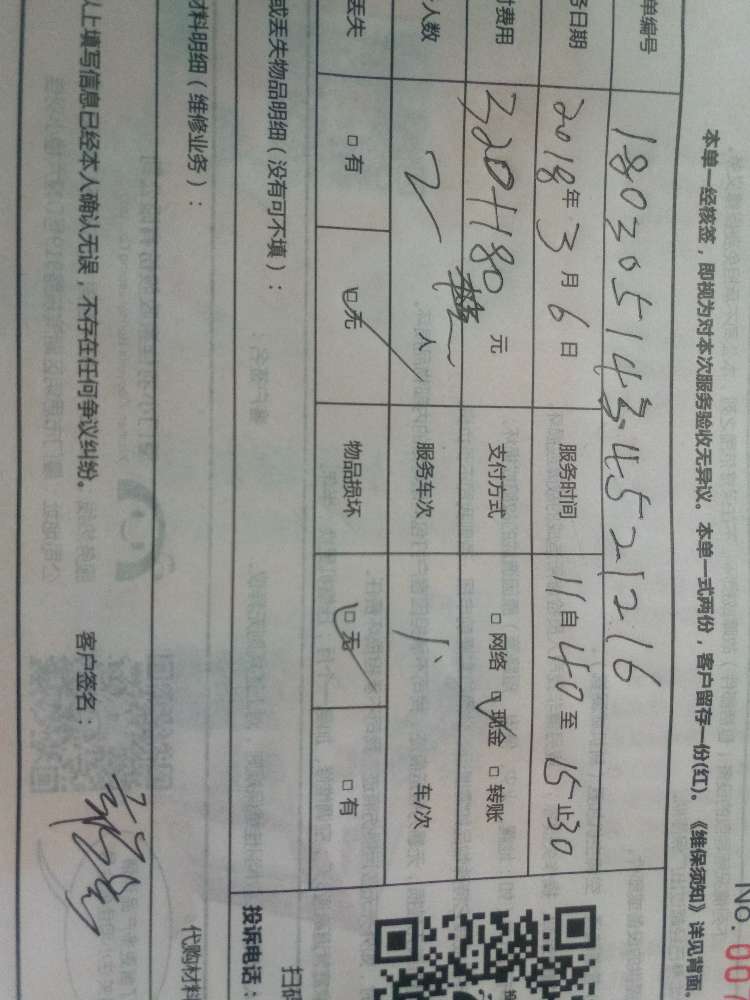 No. 00
本单一经核签，即视为对本次服务验收无异议。本单一式两份，客户留存一份(红)。《维保须知》详见背面。
单编号 1803051434521216
务日期 2018年3月6日 服务时间 11自40至15止30
付费用 320+180 元 支付方式 □网络 □现金 □转账
人数 2 人 服务车次 1 车/次
丢失 □有 □无 物品损坏 □无 □有
或丢失物品明细（没有可不填）：
材料明细（维修业务）：
以上填写信息已经本人确认无误，不存在任何争议纠纷。 客户签名：
投诉电话：
扫码
代购材料